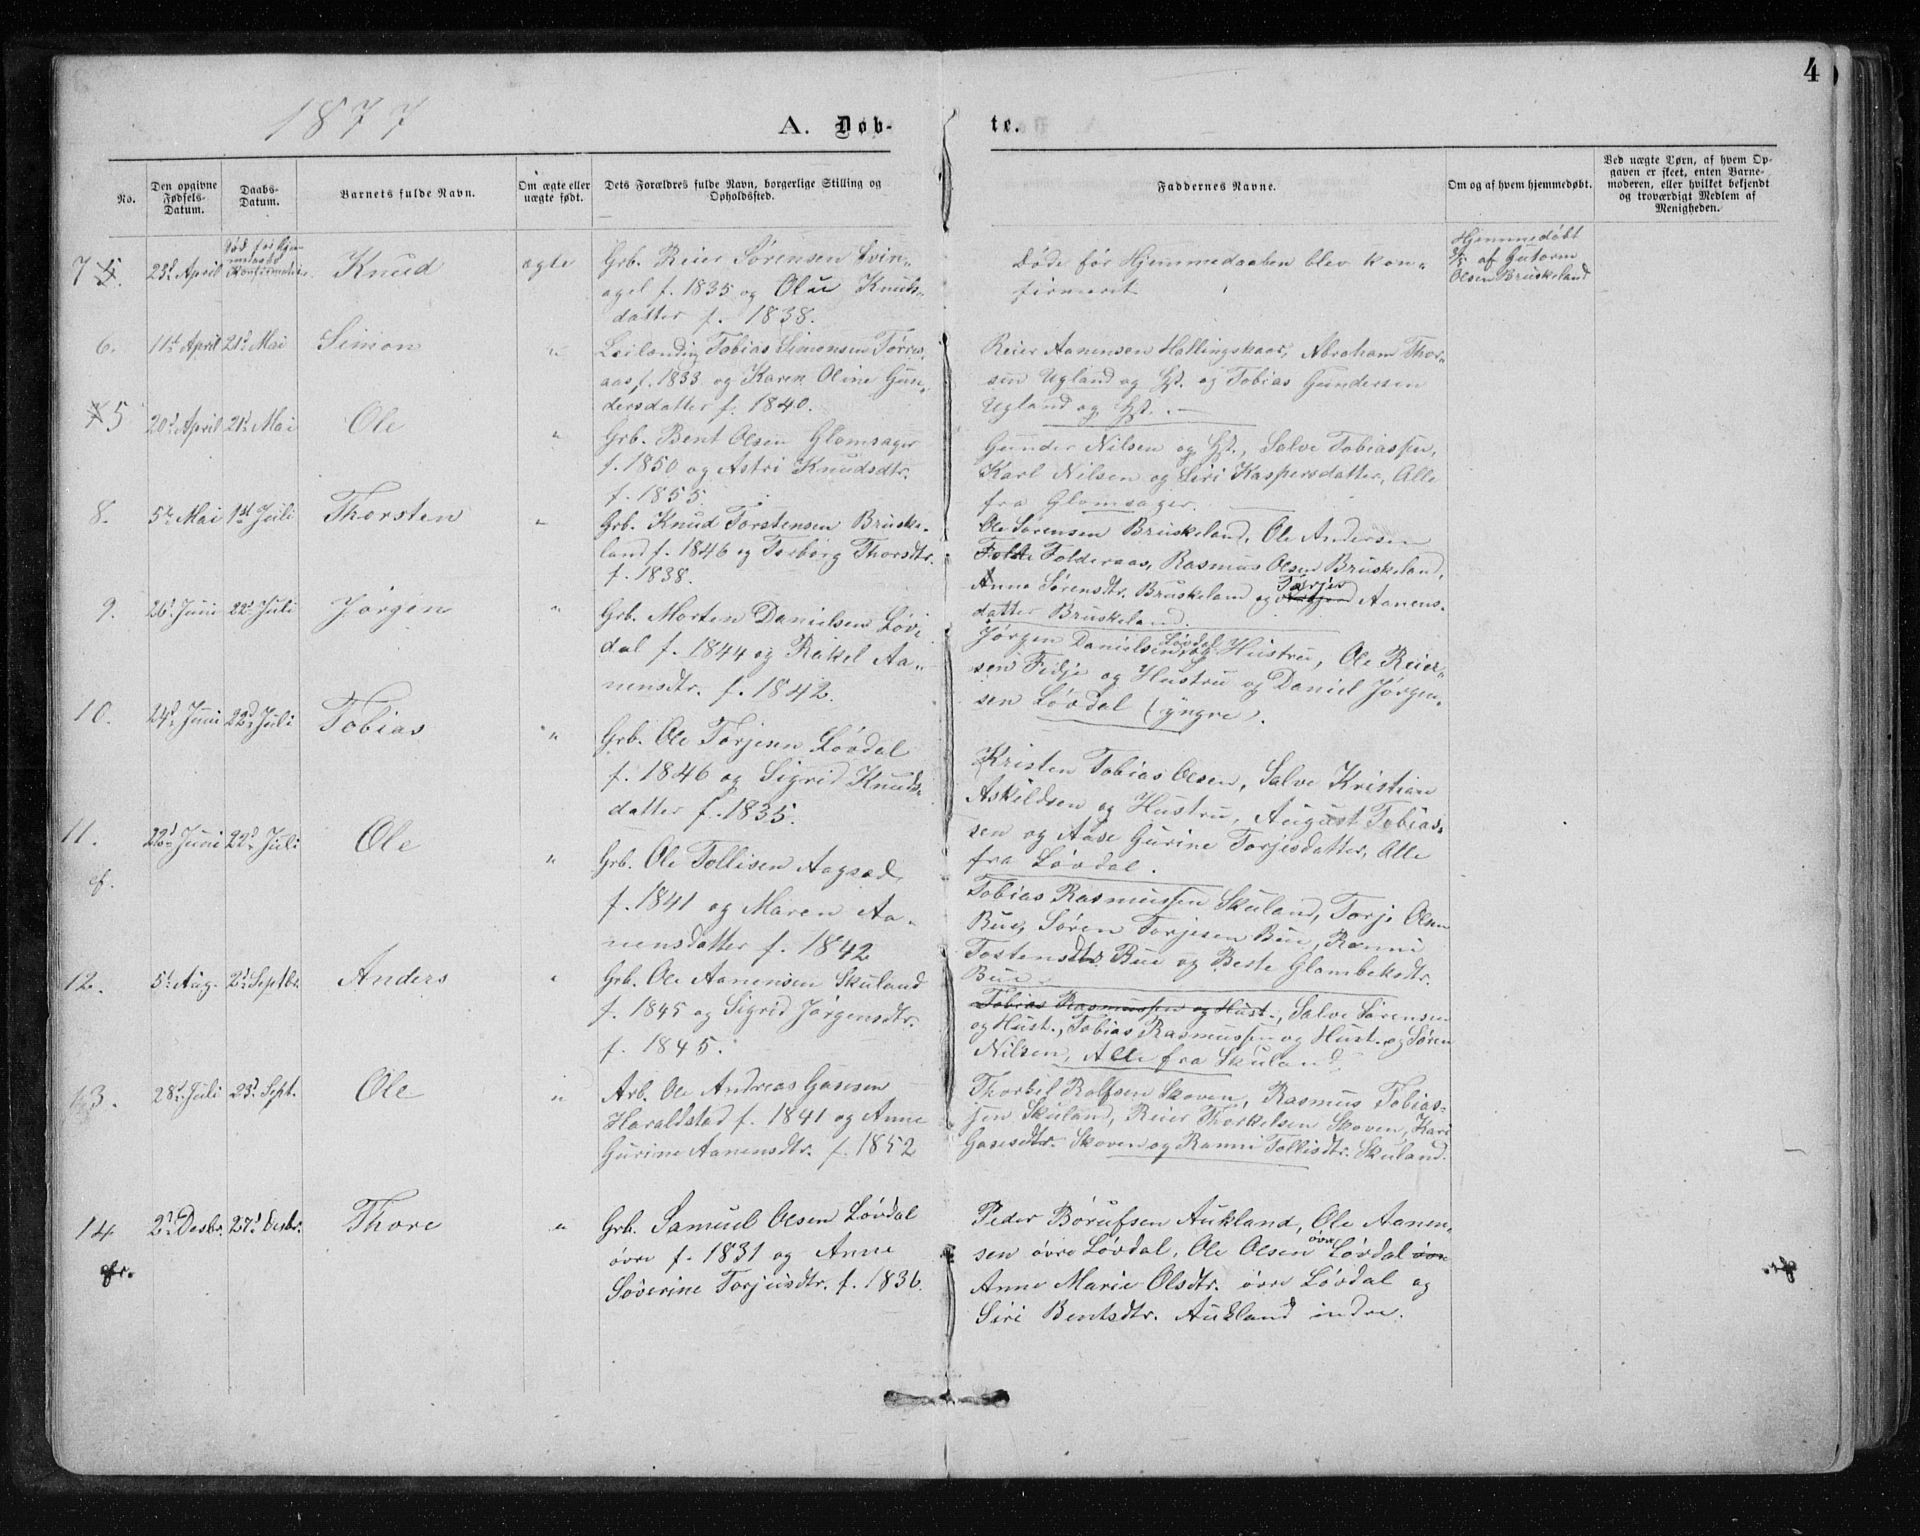 4
1877
A. Døb-
te.
No.
Den opgivne Fødsels-Datum.
Daabs-Datum.
Barnets fulde Navn.
Om ægte eller uægte født.
Dets Forældres fulde Navn, borgerlige Stilling og Opholdssted.
Faddernes Navne.
Om og af hvem hjemmedøbt.
Ved uægte Børn, af hvem Op-
gaven er skeet, enten Barne-
moderen, eller hvilket bekjendt
og troværdigt Medlem af
Menigheden.
7 5. 23d April
Død før Hjem-
medaabs
Konfirmation
Knud
ægte
Grb. Reier Sørensen
agel f. 1835 og Olue Knuds-
datter f. 1838.
Døde før Hjemmedaaben blev kon-
firmerit
Hjemmedøbt
af Gutorm
Olsen Bruskeland
6. 11t April 21d Mai Simon "
Leilænding Tobias Simonsen Tørres-
aas f. 1833 og Karen Oline Gun-
dersdatter f. 1840.
Reier Aanensen Hallingskaar, Abraham Thor-
sen Ugland og Hst. og Tobias Gundersen
Ugland og Hst. —
5 20d April 21d Mai Ole "
Grb. Bent Olsen Glomsager
f. 1850 og Astri Knudsdtr.
f. 1855.
Gunder Nilsen og Hst., Salve Tobiassen,
Karl Nilsen og Siri Kaspersdatter, Alle
fra Glomsager.
8. 5te Mai 1st Juli Thorsten "
Grb. Knud Torstensen Bruske-
land f. 1846 og Torborg Thorsdtr.
f. 1838.
Ole Sørensen Bruskeland, Ole Andersen
Folde Folderaas, Rasmus Olsen Bruskeland,
Anna Sørensdtr. Bruskeland og Torjer Aanens-
datter Bruskeland.
9. 26d Juni 22d Juli Jørgen "
Grb. Morten Danielsen Løv-
dal f. 1844 og Rakel Aa-
nensdtr. f. 1842.
Jørgen Danielsen Løvdal og Hustru, Ole Reier-
sen Fidje og Hustru og Daniel Jørgen-
sen Løvdal (yngre).
10. 24d Juni 22d Juli Tobias "
Grb. Ole Torjesen Løvdal
f. 1846 og Sigrid Knuds-
datter f. 1835.
Kristen Tobias Olsen, Salve Kristian
Askildsen og Hustru, August Tobias-
sen og Aase Gurine Torjesdatter, Alle
fra Løvdal.
11. 22d Juni 22d Juli Ole "
Grb. Ole Tollisen Aagsæd
f. 1841 og Maren Aa-
nensdatter f. 1842
Tobias Rasmussen Skuland, Torje Olsen
Bue, Søren Torjesen Bue, Ranni
Tostensdtr. Bue og Beste Glambeksdtr.
Bue
12. 5t Aug. 2d Septbr. Anders "
Grb. Ole Aanensen Skuland
f. 1845 og Sigrid Jørgensdtr.
f. 1845.
Tobias Rasmussen og Hust., Salve Sørensen
og Hust., Tobias Rasmussen og Hust. og Søren
Nilsen, Alle fra Skuland.
13. 28d Juli 23d Sept. Ole "
Arb. Ole Andreas Gasesen
Haraldstad f. 1841 og Anne
Gurine Aanensdtr. f. 1852
Thorkel Rolfsen Skoven, Rasmus Tobias-
sen Skuland, Reier Thorkelsen Skoven, Kari
Gasesdtr. Skoven og Ranni Tollisdtr. Skuland.
14. 2d Desbr. 27d Desbr. Thore "
Grb. Samuel Olsen Løvdal
øvre f. 1831 og Anne
Søverine Torjusdtr. f. 1836.
Peder Børufsen Aukland, Ole Aanen-
sen øvre Løvdal, Ole Olsen øvre Løvdal øvre
Anne Marie Olsdtr. øvre Løvdal og
Siri Bentsdtr. Aukland indre.